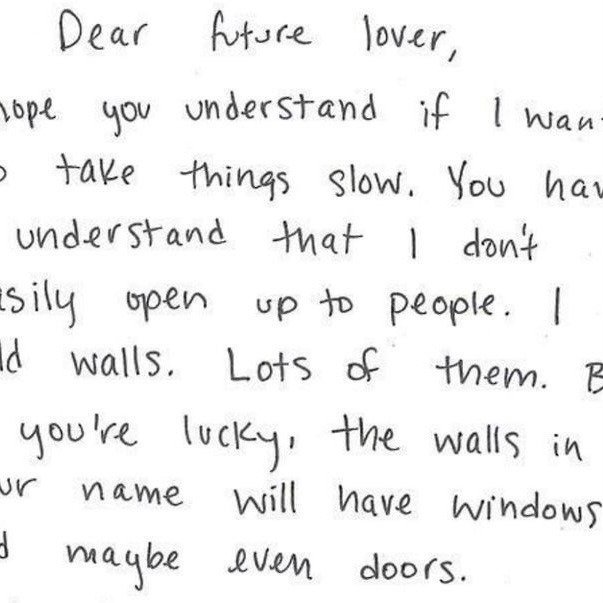 Dear future lover,
hope you understand if I wan
take things slow. You hav
understand that I don't
sily open up to people. I
ld walls. Lots of them. B
you're lucky, the walls in
ur name will have windows
d maybe even doors.